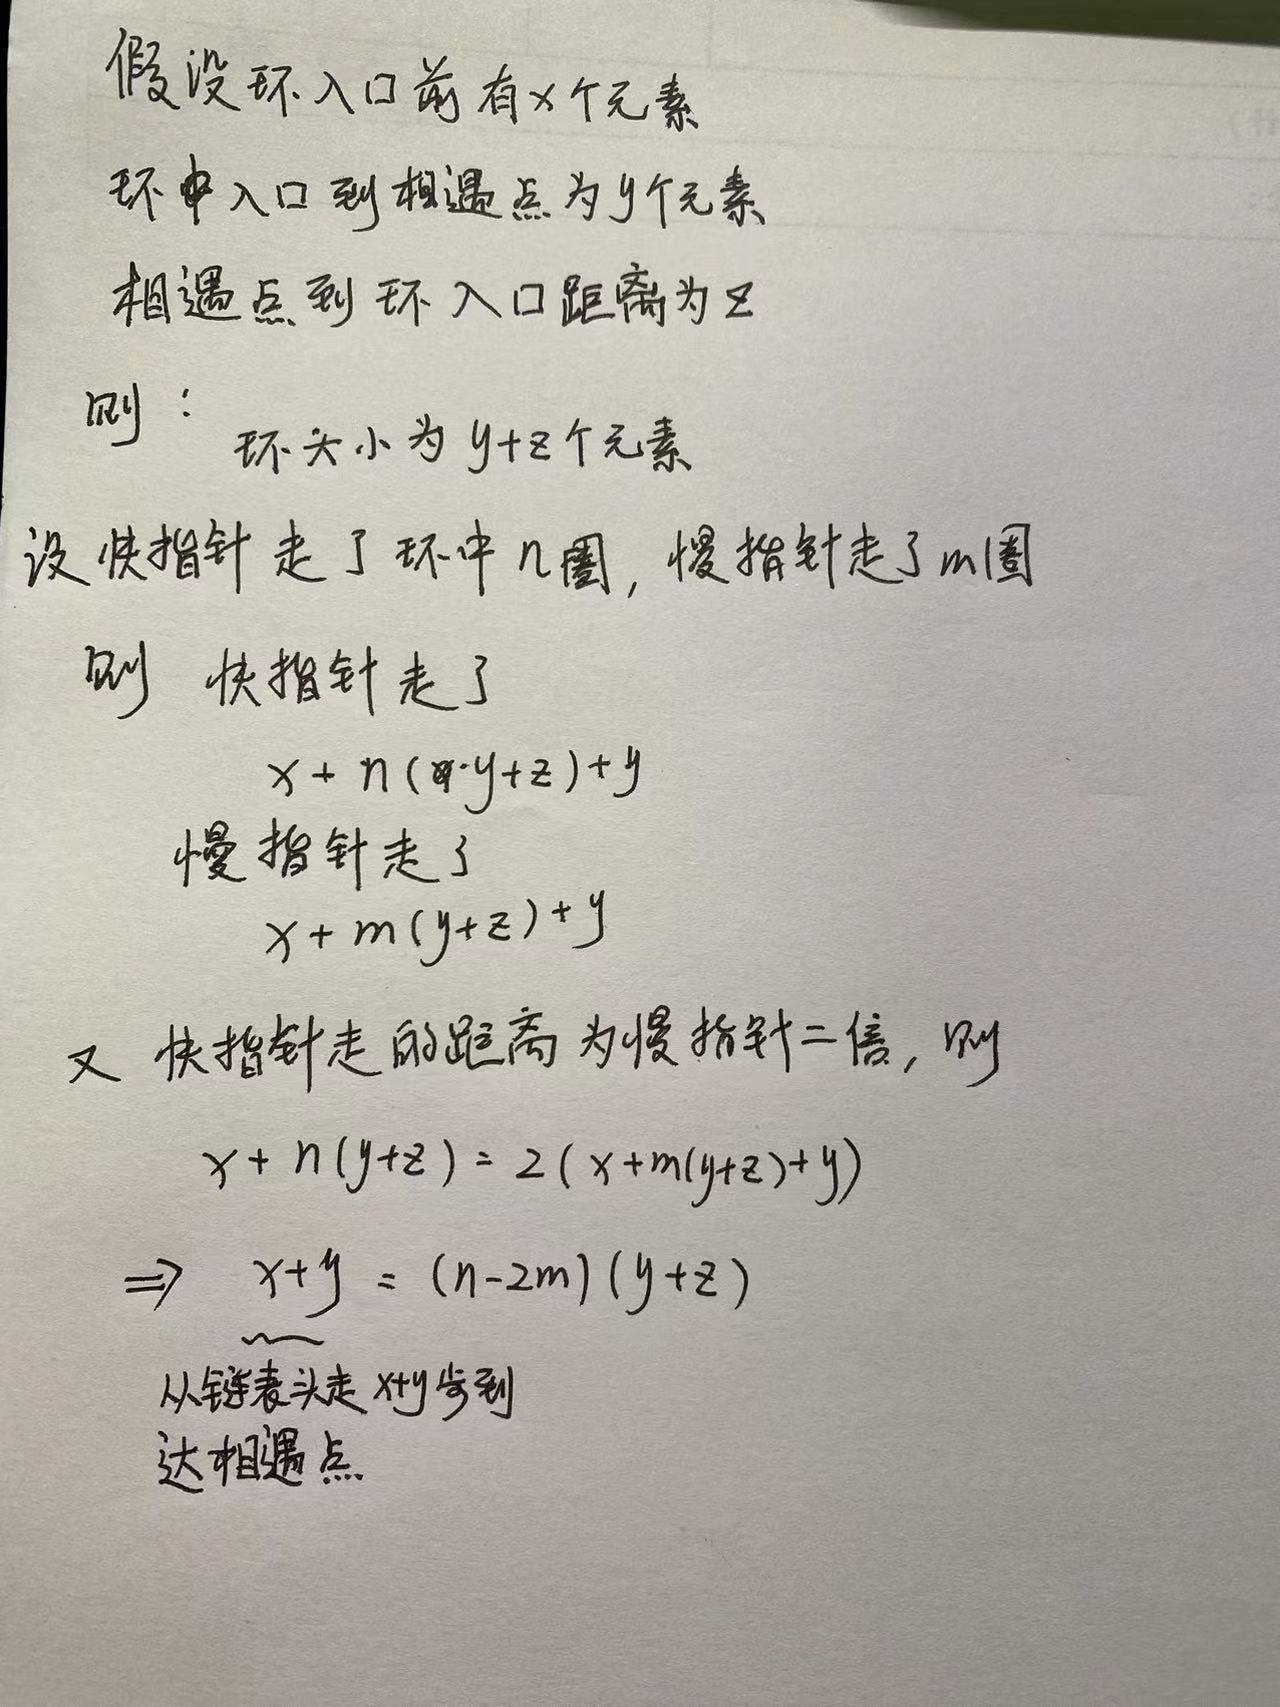 假设环入口前有x个元素
环中入口到相遇点为y个元素
相遇点到环入口距离为z
则：
环大小为y+z个元素
设快指针走了环中n圈，慢指针走了m圈
则 快指针走了
x+n(y+z)+y
慢指针走了
x+m(y+z)+y
又 快指针走的距离为慢指针二倍，则
x+n(y+z)=2(x+m(y+z)+y)
⇒ x+y=(n-2m)(y+z)
从链表头走x+y步到
达相遇点